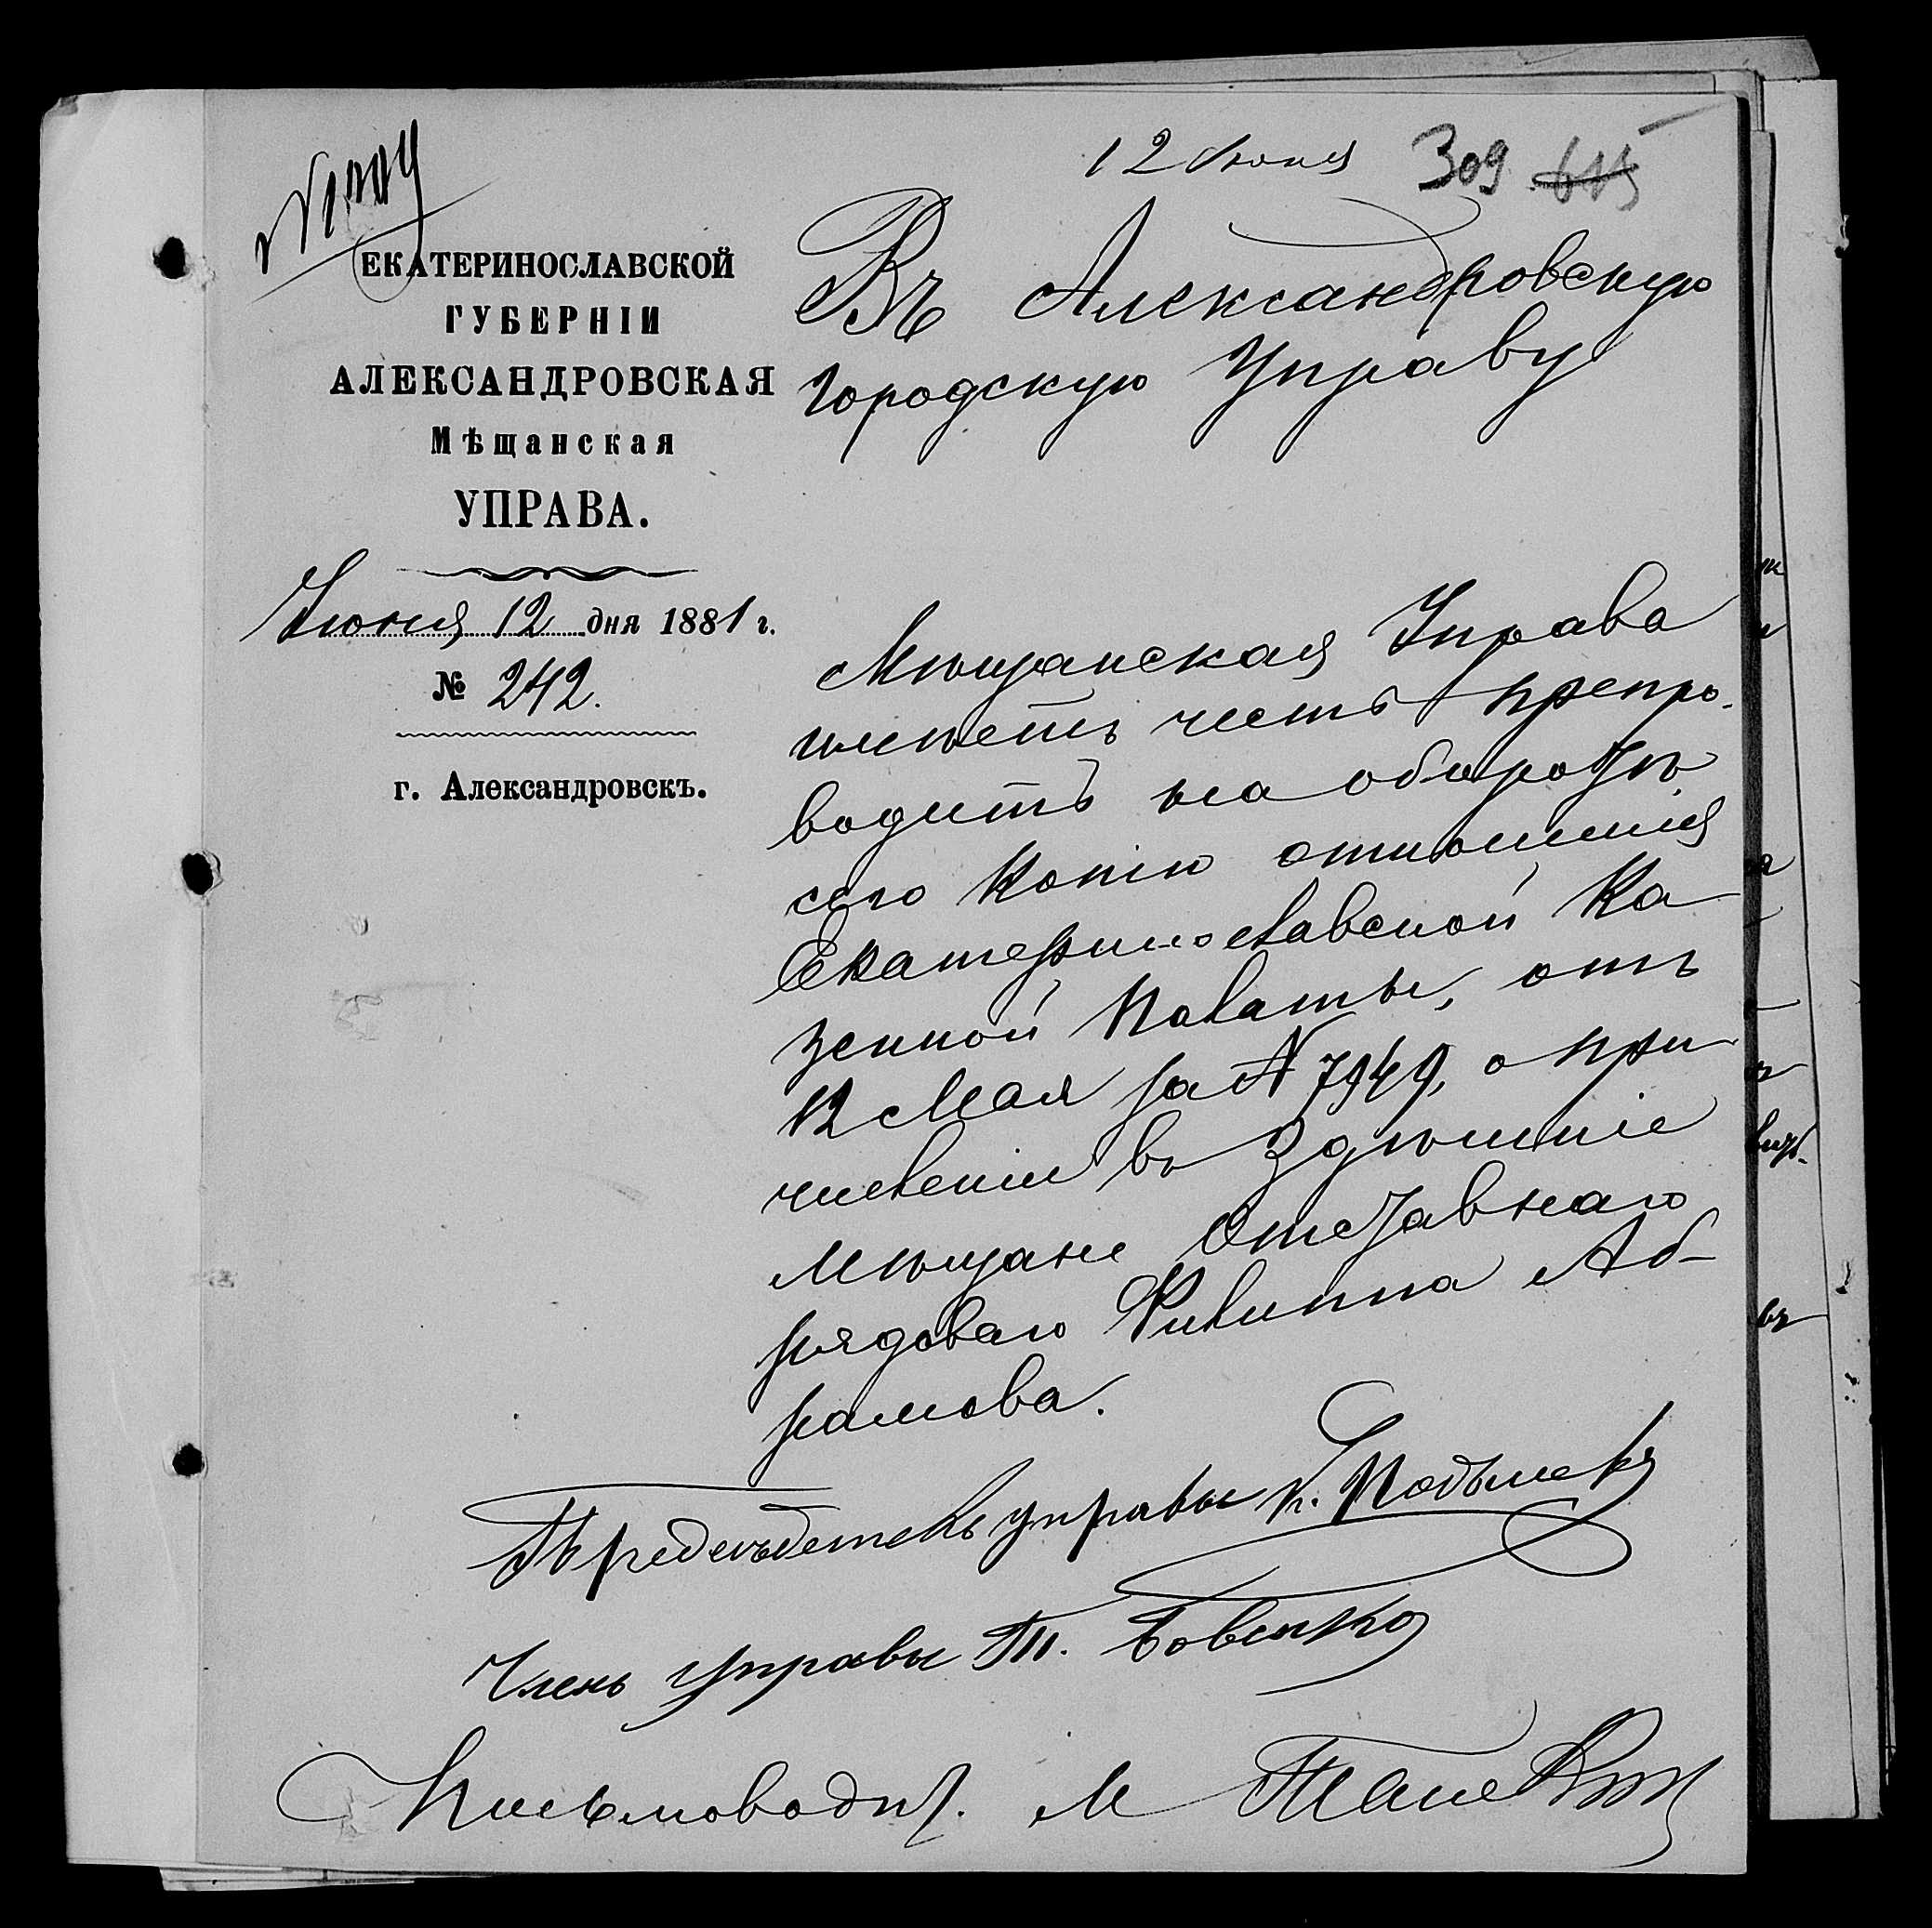 12 Июня 309
ЕКАТЕРИНОСЛАВСКОЙ
ГУБЕРНІИ
АЛЕКСАНДРОВСКАЯ
Мѣщанская
УПРАВА.
Июня 12 дня 1881 г.
№ 242.
г. Александровскъ.
Въ Александровскую
Городскую Управу
Мѣщанская Управа
имѣетъ честь препро-
водить на оборотѣ
сего Копію отношенія
Екатеринославской Ка-
зенной Палаты, отъ
12 Мая за № 7949, о при-
численіи въ Здѣшніе
мѣщане Отставнаго
рядоваго Филиппа Аб-
рамова.
Предсѣдатель управы К.
Членъ управы Т. Бовенко
Письмоводит. М